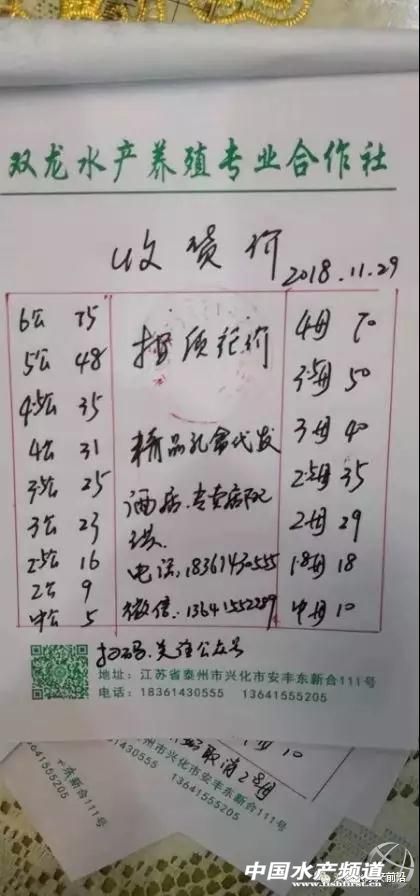 双龙水产养殖专业合作社
收货价 2018.11.29
6公 75
5公 48
4.5公 35
4公 31
3.5公 25
3公 23
2.5公 16
2公 9
中公 5
按质论价
精品礼盒代发
酒店.专卖店配
送.
电话:18361430555
微信:13641552289
4母 70
3.5母 50
3母 40
2.5母 35
2母 29
1.8母 18
中母 10
扫码.关注公众号
地址:江苏省泰州市兴化市安丰东新合111号
电话:18361430555 13641555205
10
取消2.8母
泰州市兴化市安丰东新合111号
61430555 13641555205
东新合111号
13641555205
中国水产频道
www.fishfirst.cn
前沿